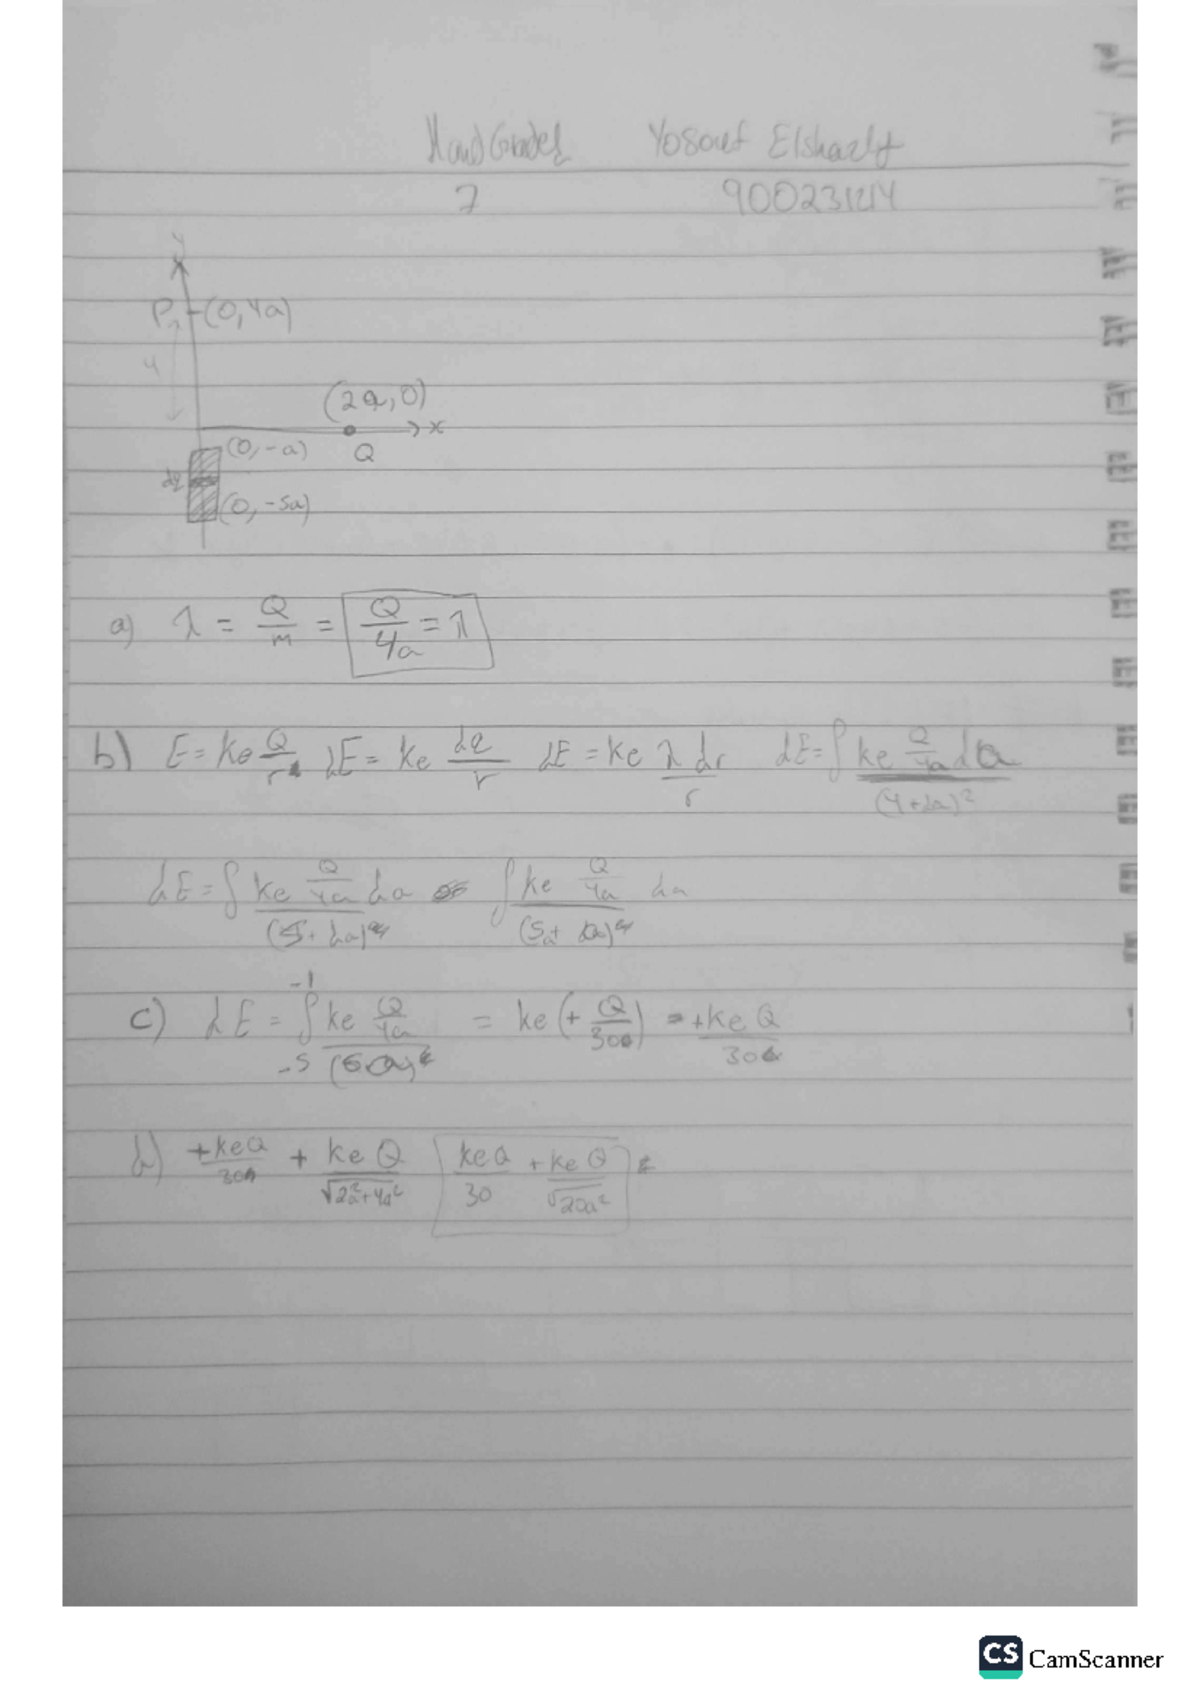 Hand Graded Yosouf Elshazly
7 900231214
y
P, (0,4a)
4
(2a,0)
x
(0,-a) Q
dq
(0,-5a)
a) λ = Q/m = Q/4a = λ
b) E = ke Q/r dE = ke dq/r dE = ke λ dr/r dE = ∫ ke Q/4a da/(4+da)²
dE = ∫ ke Q/4a da/(5+da) ∫ ke Q/4a da
c) dE = ∫ -1 -5 ke Q/4a = ke (+ Q/30a) = +ke Q/30a
d) +keQ/30a + ke Q/√2a²+4a² keQ/30 + ke Q/√20a²
CS CamScanner